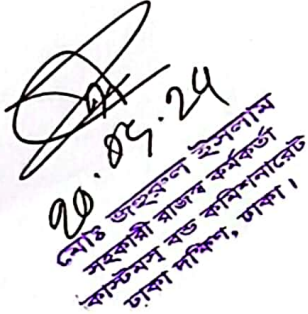 ২০.০৫.২৪
মোঃ জহিরুল ইসলাম
সহকারী রাজস্ব কর্মকর্তা
কাস্টমস বন্ড কমিশনারেট
ঢাকা দক্ষিণ, ঢাকা।